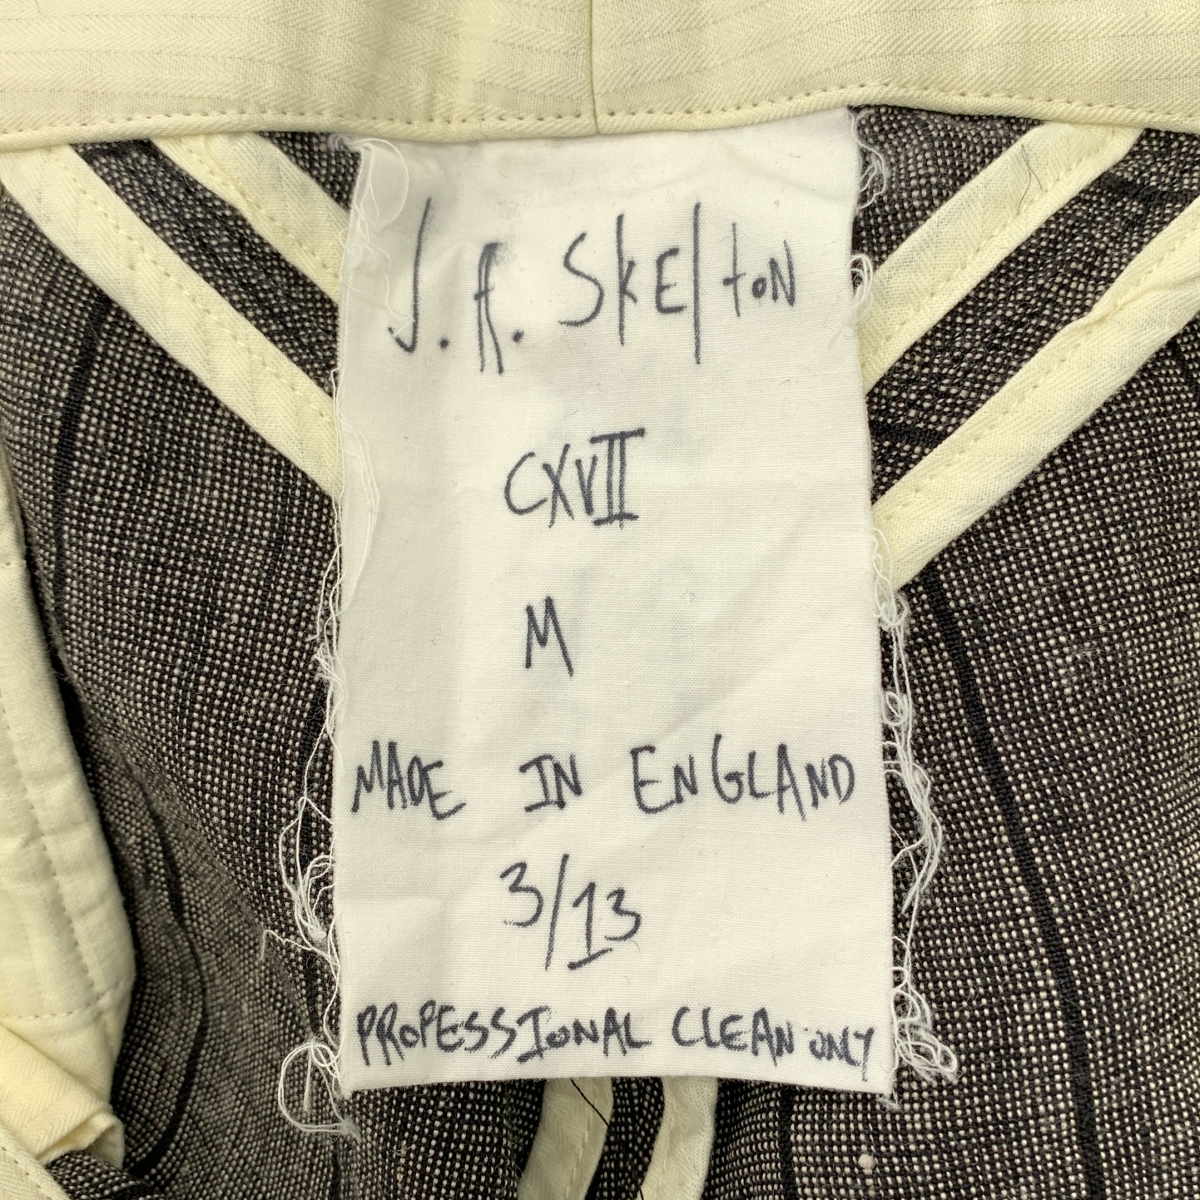 J.A. SkEltoN
CXVII
M
MADE IN ENGLAND
3/13
PROFESSIONAL CLEAN ONLY